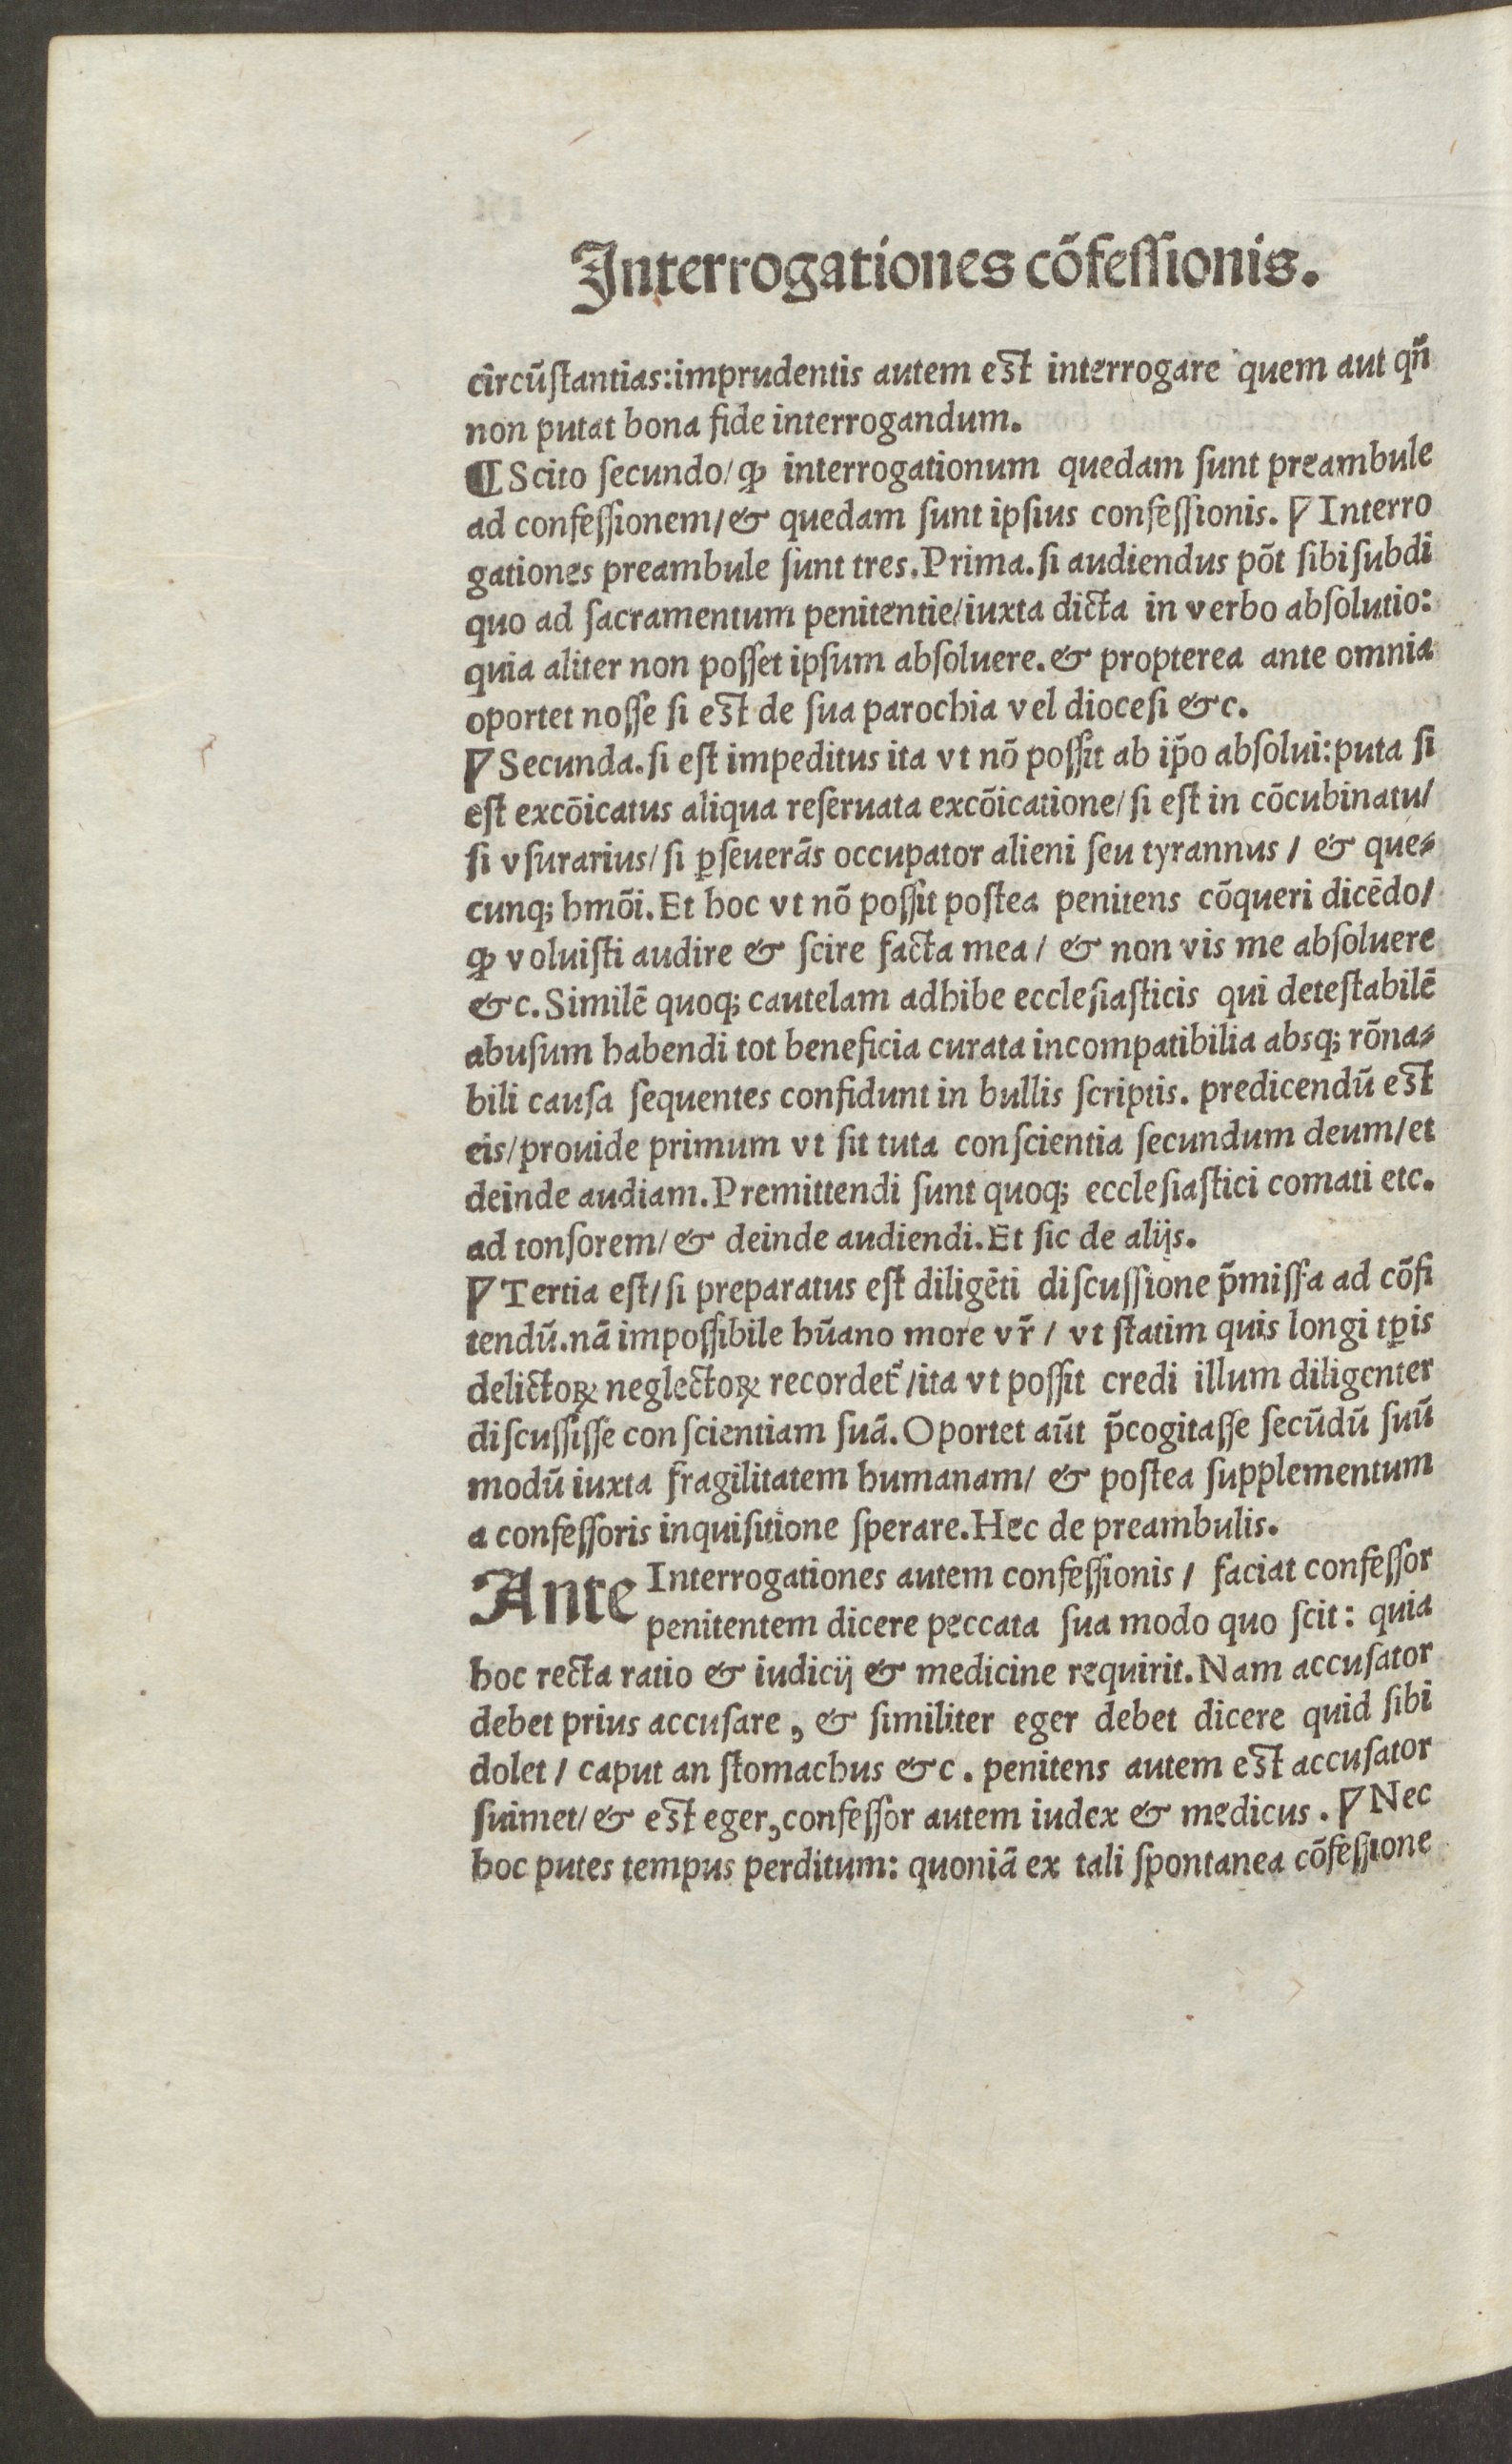 Interrogationes cõfeſſionis.
circũſtantias:imprudentis autem eſt interrogare quem aut qñ
non putat bona fide interrogandum.
¶ Scito ſecundo/ ꝙ interrogationum quedam ſunt preambule
ad confeſſionem/& quedam ſunt ipſius confeſſionis. ⁋ Interro
gationes preambule ſunt tres. Prima. ſi audiendus põt ſibi ſubdi
quo ad ſacramentum penitentie/iuxta dicta in verbo abſolutio:
quia aliter non poſſet ipſum abſoluere. & propterea ante omnia
oportet noſſe ſi eſt de ſua parochia vel dioceſi &c.
⁋ Secunda. ſi eſt impeditus ita vt nõ poſſit ab ip̃o abſolui:puta ſi
eſt excõicatus aliqua reſeruata excõicatione/ ſi eſt in cõcubinatu/
ſi vſurarius/ ſi ꝑſeuerãs occupator alieni ſeu tyrannus / & que⸗
cunq; hmõi. Et hoc vt nõ poſſit poſtea penitens cõqueri dicẽdo/
ꝙ voluiſti audire & ſcire facta mea / & non vis me abſoluere
&c. Similẽ quoq; cautelam adhibe eccleſiaſticis qui deteſtabilẽ
abuſum habendi tot beneficia curata incompatibilia absq; rõna⸗
bili cauſa ſequentes confidunt in bullis ſcriptis. predicendũ eſt
eis/prouide primum vt ſit tuta conſcientia ſecundum deum/et
deinde audiam. Premittendi ſunt quoq; eccleſiaſtici comati etc.
ad tonſorem/ & deinde audiendi. Et ſic de alijs.
⁋ Tertia eſt/ ſi preparatus eſt diligẽti diſcuſſione p̃miſſa ad cõfi
tendũ. nã impoſſibile hũano more vr̃ / vt ſtatim quis longi tꝑis
delictoꝝ neglectoꝝ recordet᷑ /ita vt poſſit credi illum diligenter
diſcuſſiſſe conſcientiam ſuã. Oportet aũt p̃cogitaſſe ſecũdũ ſuũ
modũ iuxta fragilitatem humanam/ & poſtea ſupplementum
a confeſſoris inquiſitione ſperare. Hec de preambulis.
Ante Interrogationes autem confeſſionis / faciat confeſſor
penitentem dicere peccata ſua modo quo ſcit: quia
hoc recta ratio & iudicij & medicine requirit. Nam accuſator
debet prius accuſare, & ſimiliter eger debet dicere quid ſibi
dolet / caput an ſtomachus &c. penitens autem eſt accuſator
ſuimet/ & eſt eger, confeſſor autem iudex & medicus. ⁋ Nec
hoc putes tempus perditum: quoniã ex tali ſpontanea cõfeſſione